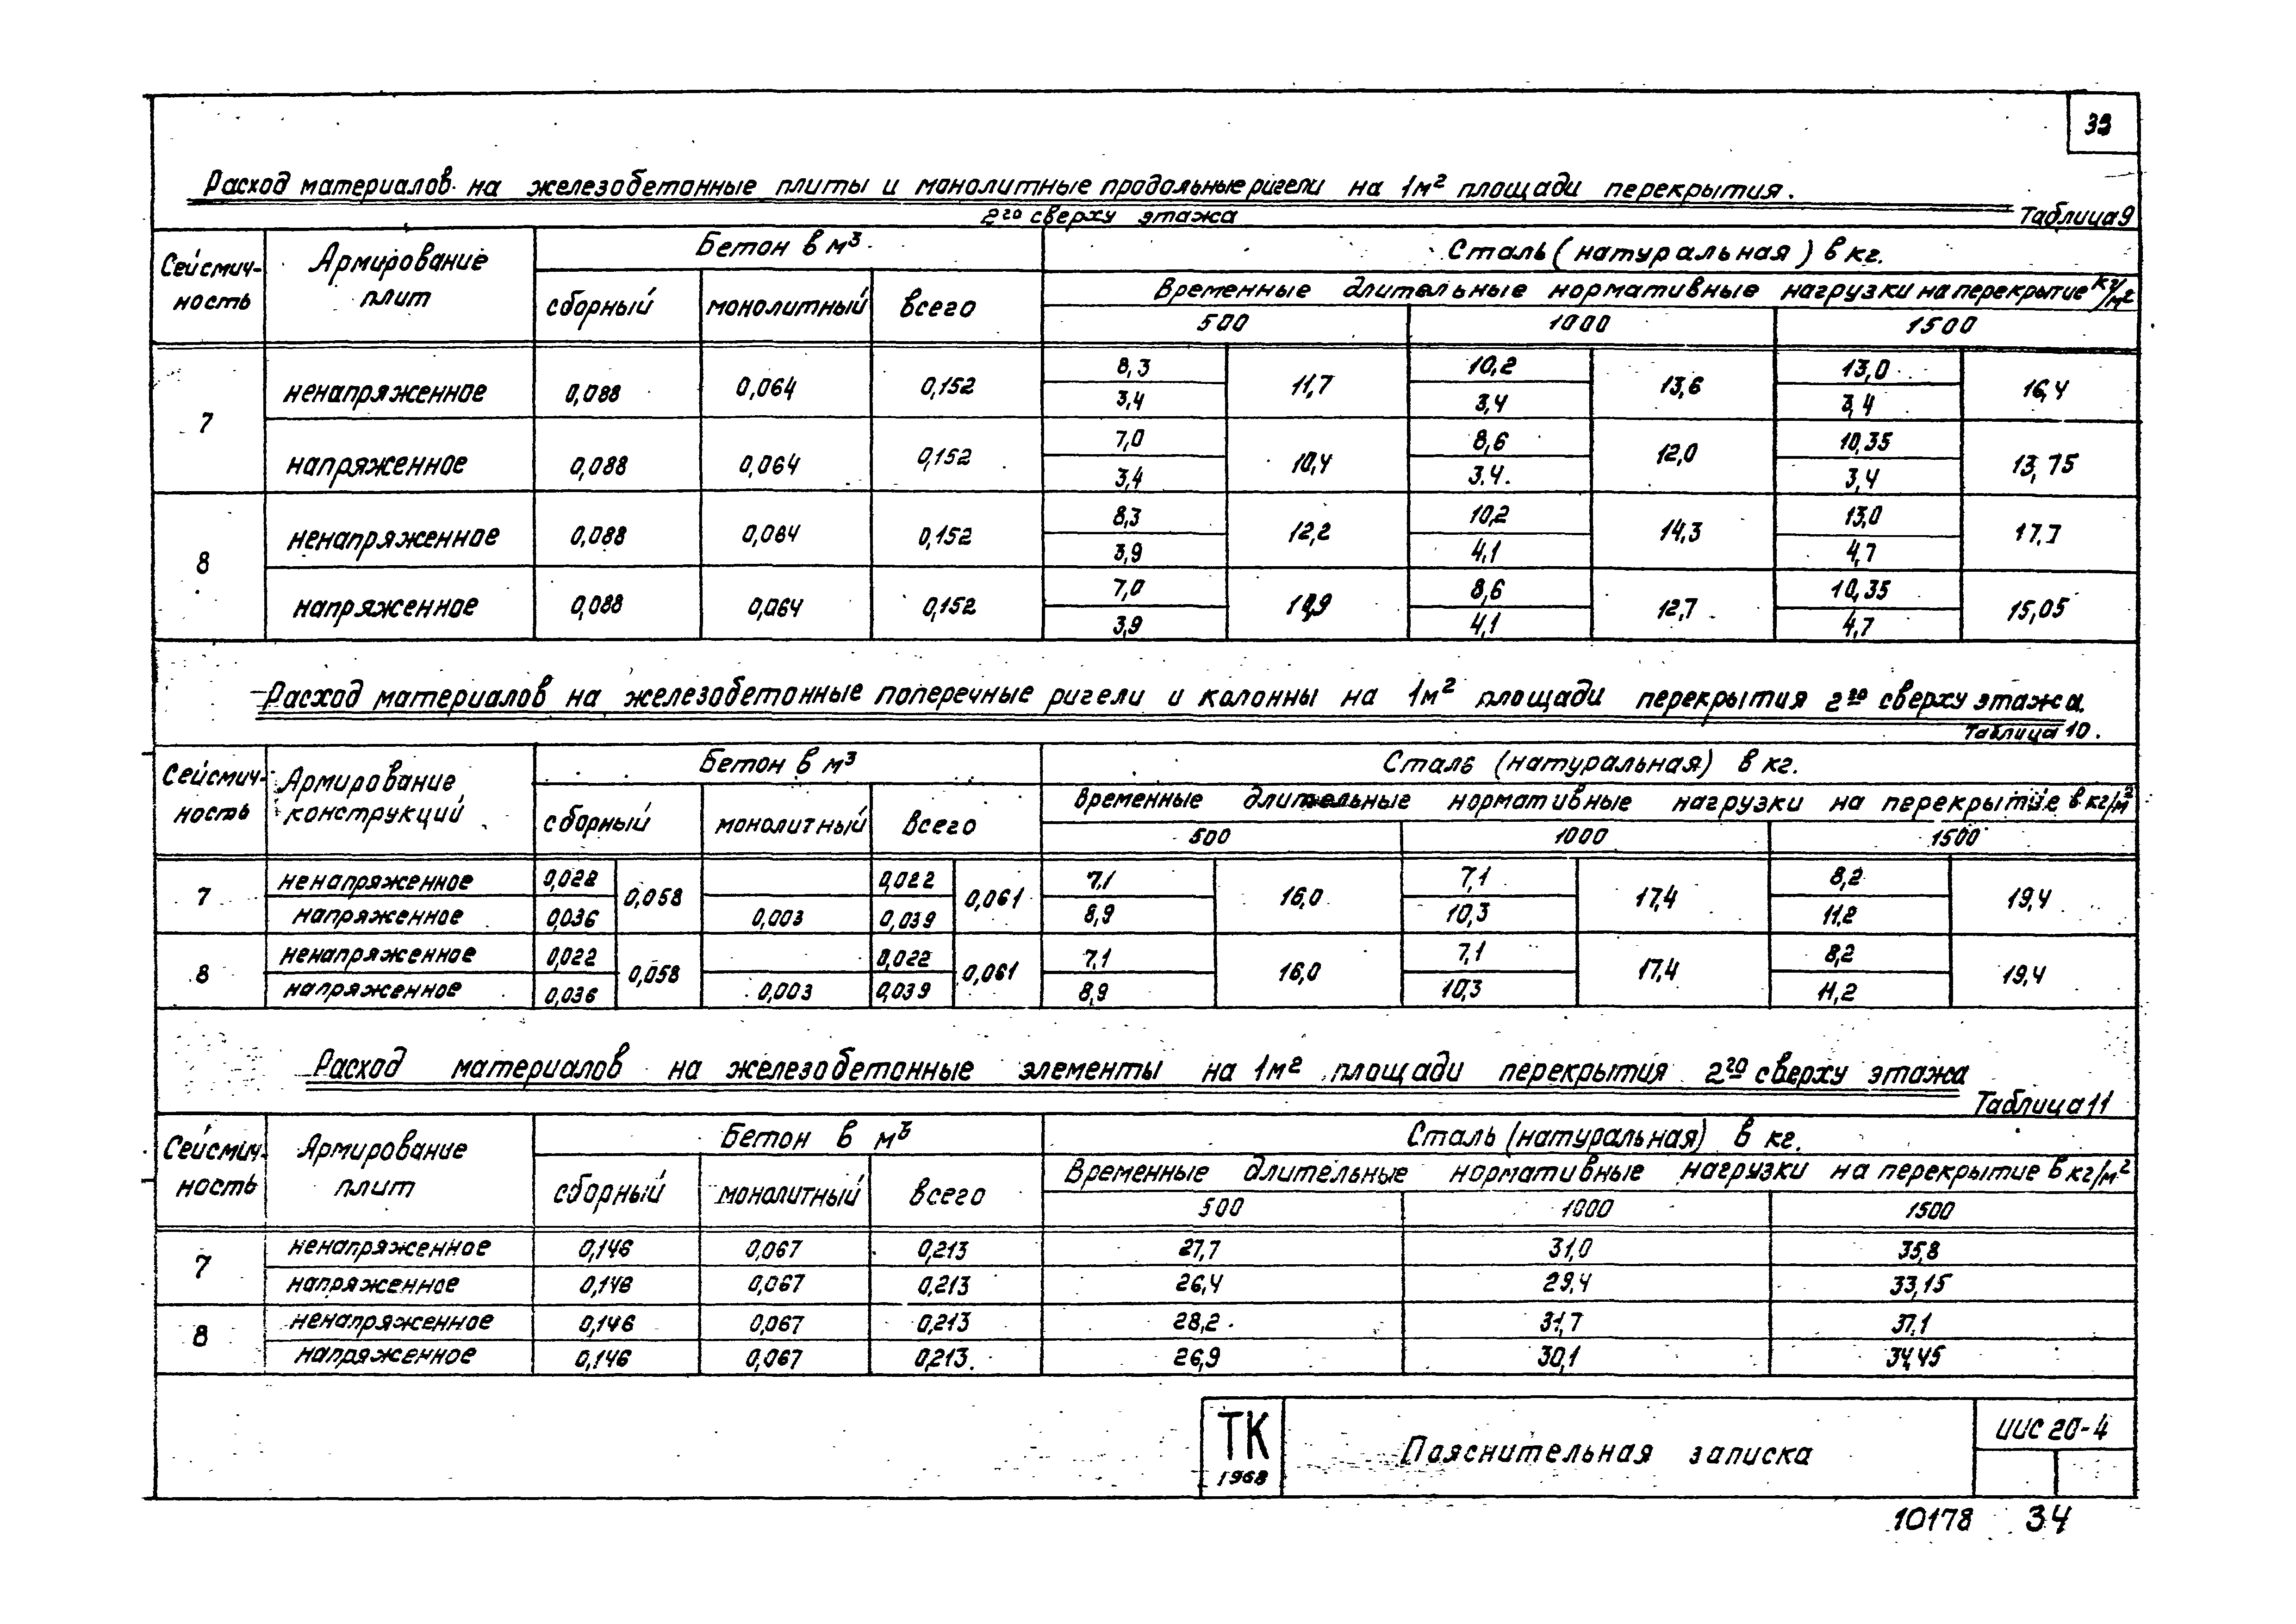 33
Расход материалов на железобетонные плиты и монолитные продольные ригели на 1м² площади перекрытия.
2го сверху этажа
Таблица 9
Сейсмич-ность Армирование плит Бетон в м³ Сталь (натуральная) в кг.
сборный монолитный всего Временные длительные нормативные нагрузки на перекрытие кг/м²
500 1000 1500
7 ненапряженное 0,088 0,064 0,152 8,3 3,4 11,7 10,2 3,4 13,6 13,0 3,4 16,4
напряженное 0,088 0,064 0,152 7,0 3,4 10,4 8,6 3.4. 12,0 10,35 3,4 13,75
8 ненапряженное 0,088 0,064 0,152 8,3 3,9 12,2 10,2 4,1 14,3 13,0 4,7 17,7
напряженное 0,088 0,064 0,152 7,0 3,9 10,9 8,6 4,1 12,7 10,35 4,7 15,05
Расход материалов на железобетонные поперечные ригели и колонны на 1м² площади перекрытия 2го сверху этажа.
Таблица 10.
Сейсмич-ность Армирование конструкций Бетон в м³ Сталь (натуральная) в кг.
сборный монолитный всего Временные длительные нормативные нагрузки на перекрытие в кг/м²
500 1000 1500
7 ненапряженное 0,022 0,058 0,022 0,061 7,1 16,0 7,1 17,4 8,2 19,4
напряженное 0,036 0,003 0,039 8,9 10,3 11,2
8 ненапряженное 0,022 0,058 0,022 0,061 7,1 16,0 7,1 17,4 8,2 19,4
напряженное 0,036 0,003 0,039 8,9 10,3 11,2
Расход материалов на железобетонные элементы на 1м² площади перекрытия 2го сверху этажа
Таблица 11
Сейсмич-ность Армирование плит Бетон в м³ Сталь (натуральная) в кг.
сборный монолитный всего Временные длительные нормативные нагрузки на перекрытие в кг/м²
500 1000 1500
7 ненапряженное 0,146 0,067 0,213 27,7 31,0 35,8
напряженное 0,146 0,067 0,213 26,4 29,4 33,15
8 ненапряженное 0,146 0,067 0,213 28,2 31,7 37,1
напряженное 0,146 0,067 0,213 26,9 30,1 34,45
ТК
1968
Пояснительная записка
ИИС 20-4
10178 34